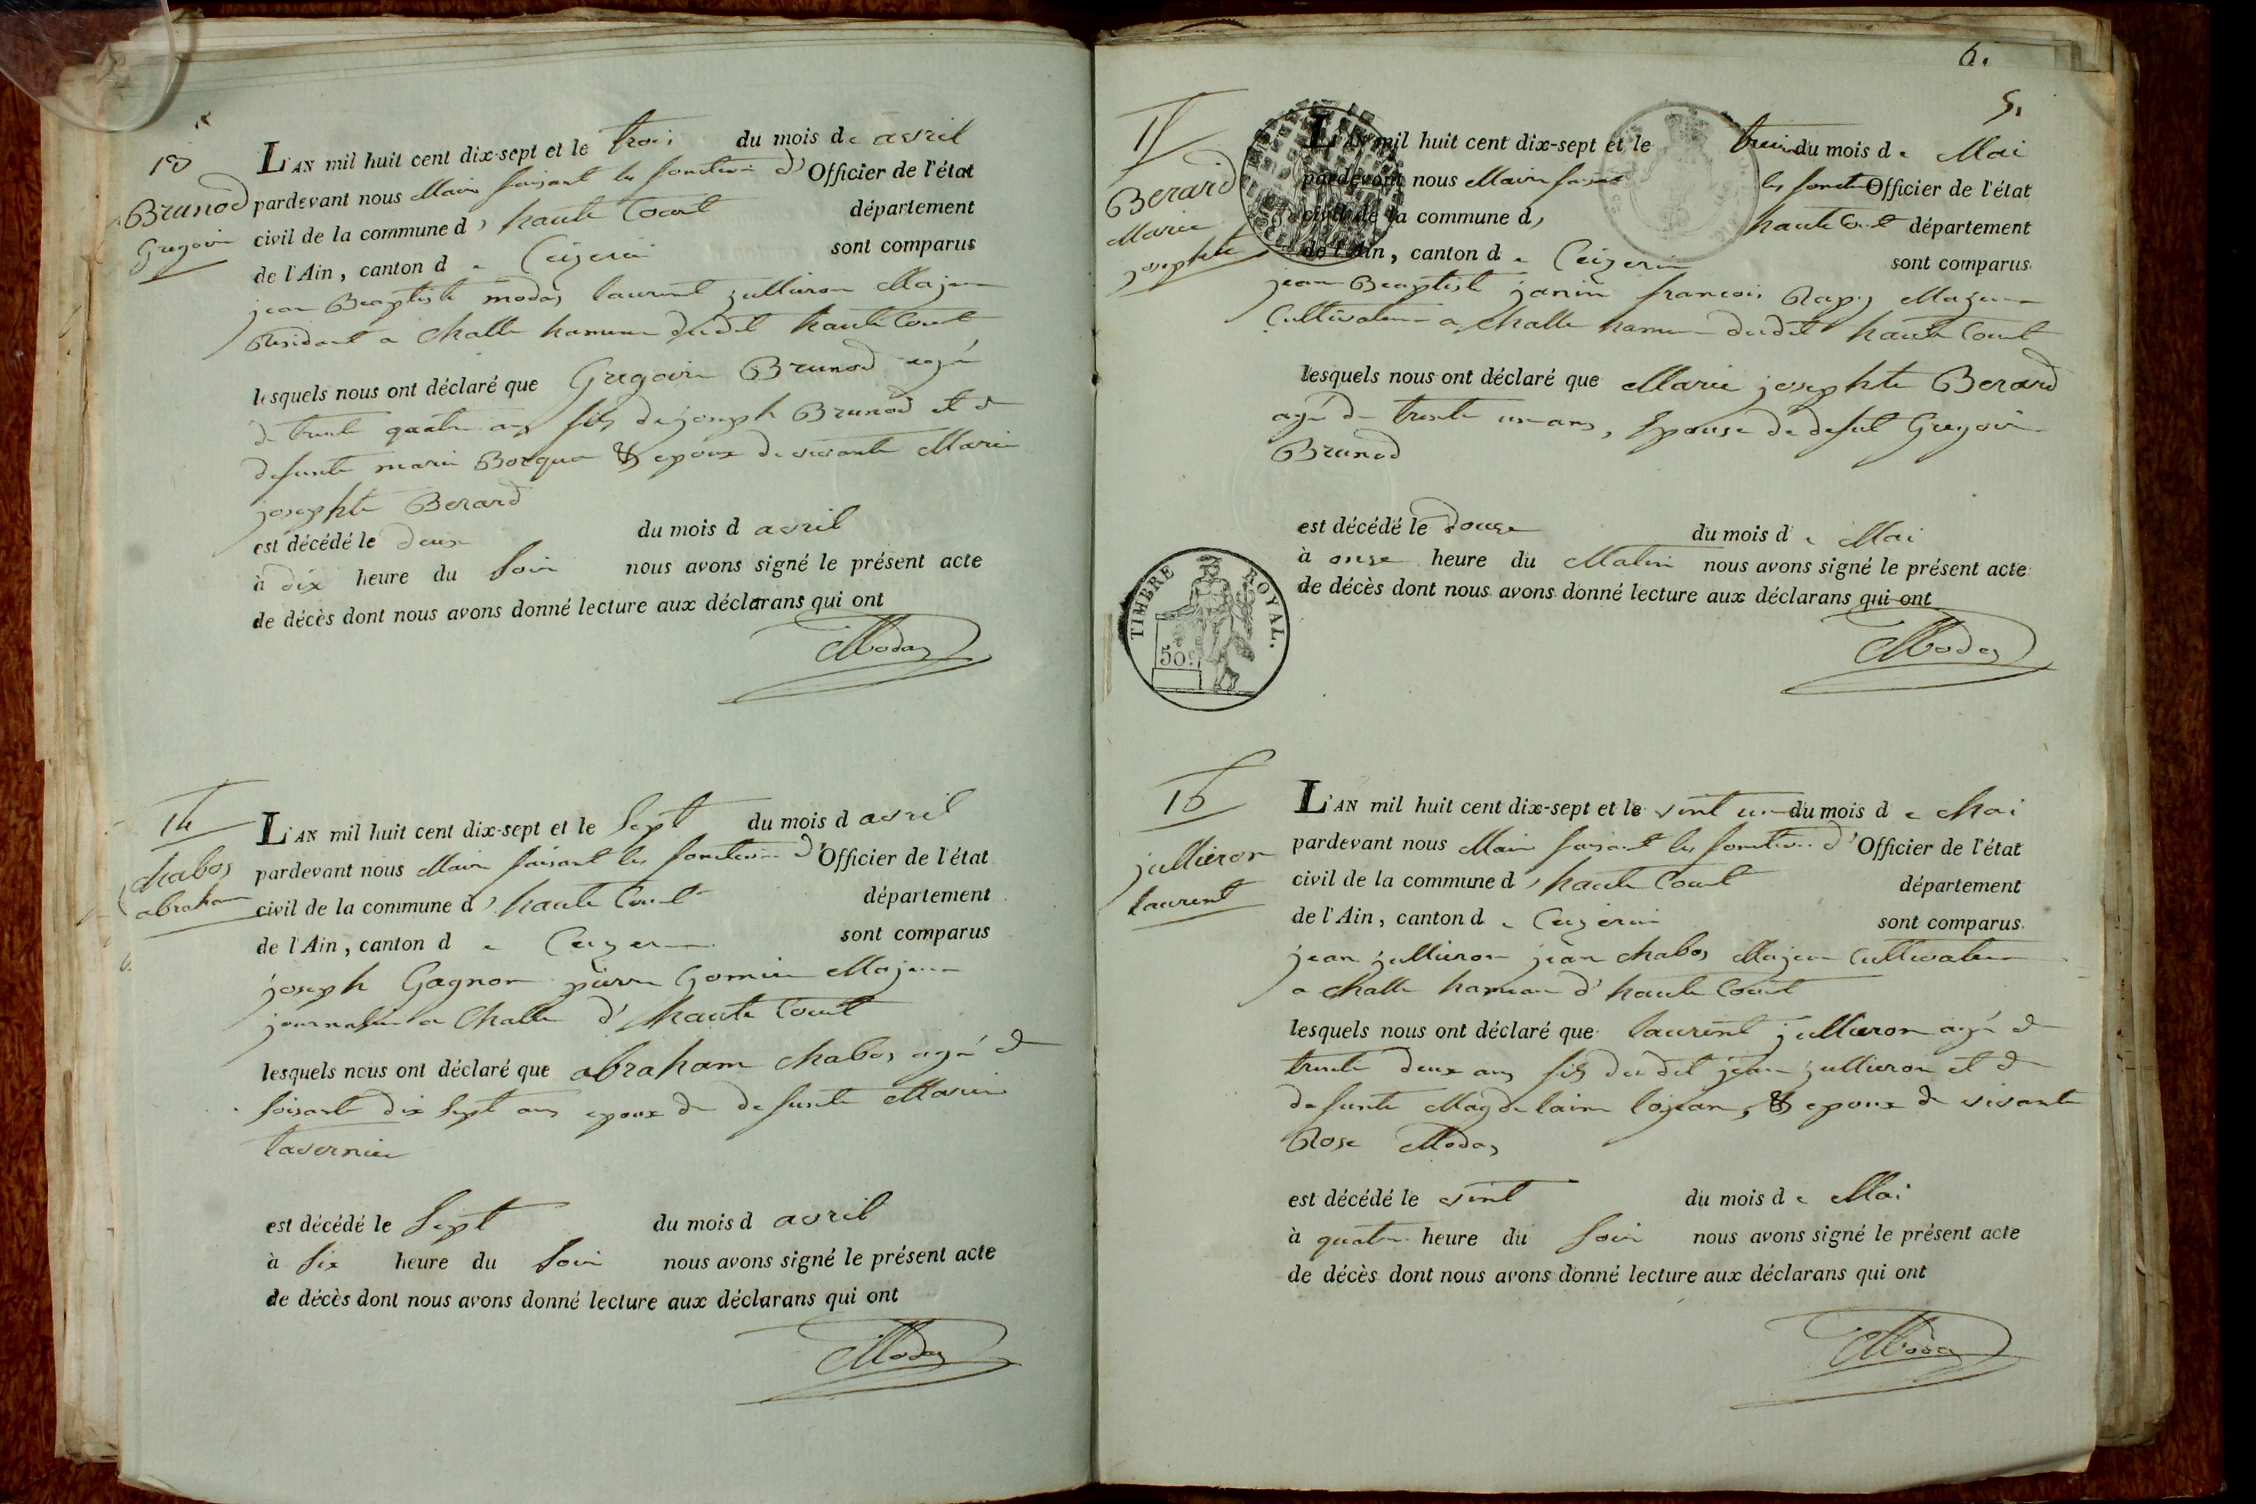 13
Brunod
Gregoire
L'AN mil huit cent dix-sept et le trois du mois de avril
pardevant nous Maire faisant les fonction d'Officier de l'état
civil de la commune d'haute Court département
de l'Ain, canton de Ceizeria sont comparus
jean Beaptiste modas laurent jullieron Majeur
Residant a Challe hameau dudit haute Court
lesquels nous ont déclaré que Gregoire Brunod agé
de trente quatre ans fils de joseph Brunod et de
defunte marie Bocquo & epoux de vivante Marie
josephte Berard
est décédé le deux du mois d avril
à dix heure du soir nous avons signé le présent acte
de décès dont nous avons donné lecture aux déclarans qui ont
Modas
14
chabos
abraham
L'AN mil huit cent dix-sept et le sept du mois d avril
pardevant nous Maire faisant les fonction d'Officier de l'état
civil de la commune d'haute Court département
de l'Ain, canton de Ceizeria sont comparus
joseph Gagnon pierre Gomin Majeur
journalier a Challe d'haute Court
lesquels nous ont déclaré que abraham chabos agé de
soisante dix sept ans epoux de defunte Marie
tavernier
est décédé le sept du mois d avril
à six heure du soir nous avons signé le présent acte
de décès dont nous avons donné lecture aux déclarans qui ont
Modas
6.
5.
15
Berard
Marie
josephte
L'AN mil huit cent dix-sept et le treize du mois de Mai
pardevant nous Maire faisant les fonction Officier de l'état
civil de la commune d, haute Court département
de l'Ain, canton de Ceizeria sont comparus
jean Beaptiste janin francois Rapy Majeur
Cultivateur a Challe hameau dudit haute Court
lesquels nous ont déclaré que Marie josephte Berard
agé de trente un ans, Epouse de defut Gregoire
Brunod
est décédé le douze du mois de Mai
à onze heure du Matin nous avons signé le présent acte
de décès dont nous avons donné lecture aux déclarans qui ont
Modas
TIMBRE ROYAL.
50c
16
jullieron
laurent
L'AN mil huit cent dix-sept et le vint un du mois de Mai
pardevant nous Maire faisant les fonction d'Officier de l'état
civil de la commune d'haute Court département
de l'Ain, canton de Ceizeria sont comparus
jean jullieron jean chabos Majeur Cultivateur
a Challe hameau d'haute Court
lesquels nous ont déclaré que laurent jullieron agé de
trente deux ans fils dudit jean jullieron et de
defunte Magdelaine lojean, & epoux de vivante
Rose Modas
est décédé le vint du mois de Mai
à quatre heure du soir nous avons signé le présent acte
de décès dont nous avons donné lecture aux déclarans qui ont
Modas